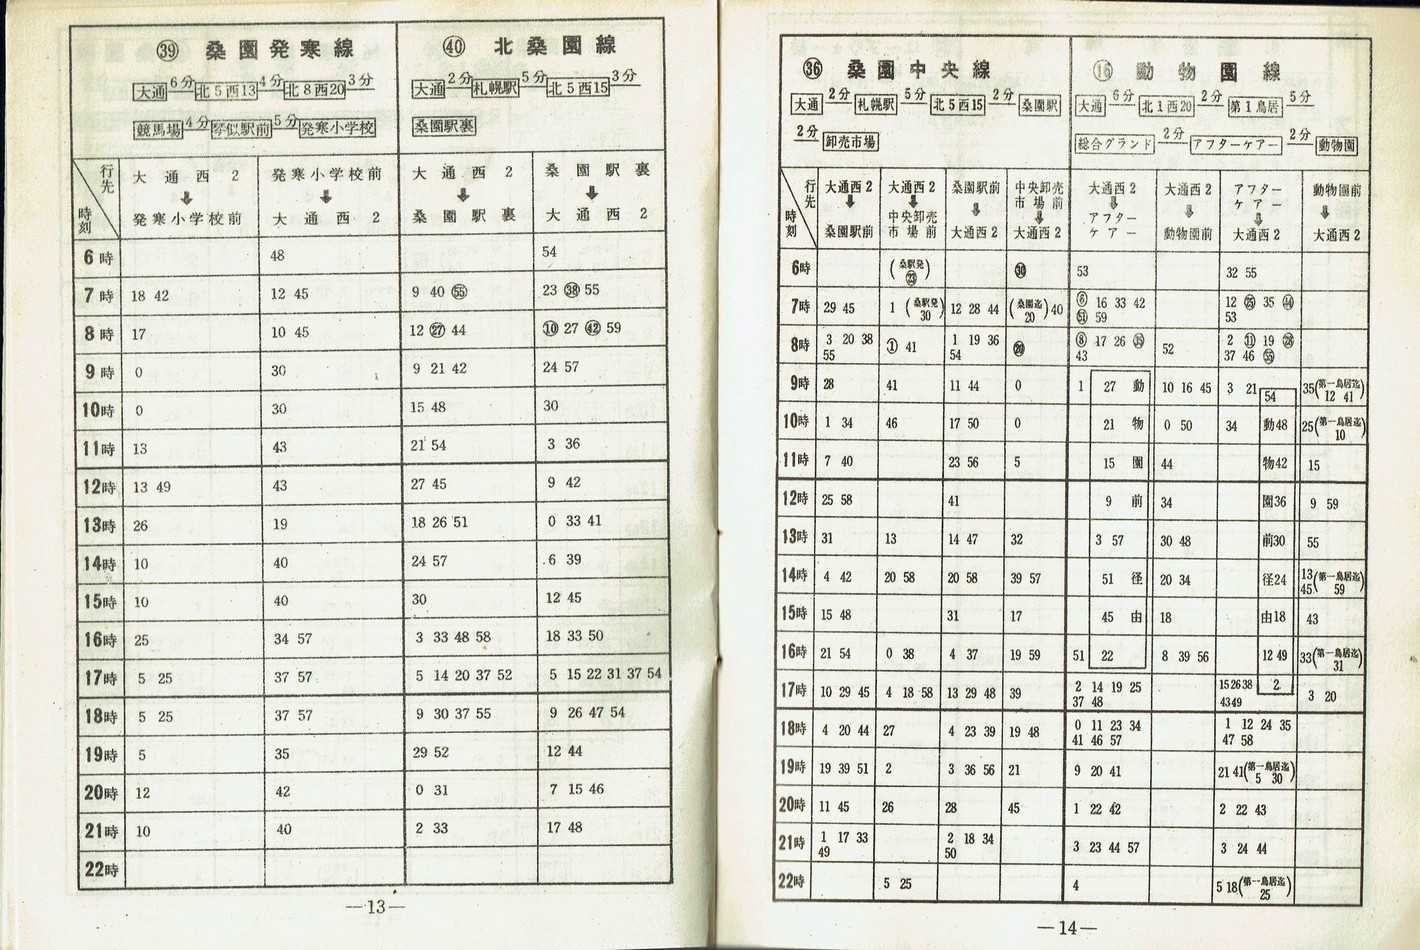 ㊴ 桑園発寒線
大通 6分 北5西13 4分 北8西20 3分
競馬場 4分 琴似駅前 5分 発寒小学校
㊵ 北桑園線
大通 2分 札幌駅 5分 北5西15 3分
桑園駅裏
行先 時刻 大通西2 ➡ 発寒小学校前 発寒小学校前 ➡ 大通西2 大通西2 ➡ 桑園駅裏 桑園駅裏 ➡ 大通西2
6時 48 54
7時 18 42 12 45 9 40 ㊺ 23 ㊳ 55
8時 17 10 45 12 ㉗ 44 ⑩ 27 ㊷ 59
9時 0 30 9 21 42 24 57
10時 0 30 15 48 30
11時 13 43 21 54 3 36
12時 13 49 43 27 45 9 42
13時 26 19 18 26 51 0 33 41
14時 10 40 24 57 6 39
15時 10 40 30 12 45
16時 25 34 57 3 33 48 58 18 33 50
17時 5 25 37 57 5 14 20 37 52 5 15 22 31 37 54
18時 5 25 37 57 9 30 37 55 9 26 47 54
19時 5 35 29 52 12 44
20時 12 42 0 31 7 15 46
21時 10 40 2 33 17 48
22時
—13—
㊱ 桑園中央線
大通 2分 札幌駅 5分 北5西15 2分 桑園駅
2分 卸売市場
⑯ 動物園線
大通 6分 北1西20 2分 第1鳥居 5分
総合グランド 2分 アフターケアー 2分 動物園
行先 時刻 大通西2 ➡ 桑園駅前 大通西2 ➡ 中央卸売市場前 桑園駅前 ➡ 大通西2 中央卸売市場前 ➡ 大通西2 大通西2 ➡ アフターケアー 大通西2 ➡ 動物園前 アフターケアー ➡ 大通西2 動物園前 ➡ 大通西2
6時 (桑駅発 ㉓) ㉚ 53 32 55
7時 29 45 1 (桑駅発 30) 12 28 44 (桑園迄 20) 40 ⑥ 16 33 42 59 12 35 ㊹ 53
8時 3 20 38 55 ① 41 1 19 36 54 ⑳ ⑧ 17 26 43 52 2 ⑪ 19 37 46
9時 28 41 11 44 0 1 27 動 10 16 45 3 21 54 35(第一鳥居迄 12 41)
10時 1 34 46 17 50 0 21 物 0 50 34 動48 25(第一鳥居迄 10)
11時 7 40 23 56 5 15 園 44 物42 15
12時 25 58 41 9 前 34 園36 9 59
13時 31 13 14 47 32 3 57 30 48 前30 55
14時 4 42 20 58 20 58 39 57 51 径 20 34 径24 13 45(第一鳥居迄 59)
15時 15 48 31 17 45 由 18 由18 43
16時 21 54 0 38 4 37 19 59 51 22 8 39 56 12 49 33(第一鳥居迄 31)
17時 10 29 45 4 18 58 13 29 48 39 2 14 19 25 37 48 15 26 38 43 49 2 3 20
18時 4 20 44 27 4 23 39 19 48 0 11 23 34 41 46 57 1 12 24 35 47 58
19時 19 39 51 2 3 36 56 21 9 20 41 21 41(第一鳥居迄 5 30)
20時 11 45 26 28 45 1 22 42 2 22 43
21時 1 17 33 49 2 18 34 50 3 23 44 57 3 24 44
22時 5 25 4 5 18(第一鳥居迄 25)
—14—